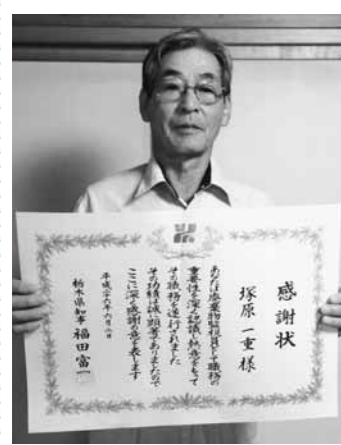 感謝状
塚原一重様
あなたは廃棄物監視員として職務の
重要性を深く認識し熱意をもって
その職務を遂行されました
その功績は誠に顕著でありましたので
ここに深く感謝の意を表します
平成二十六年六月二日
栃木県知事 福田富一